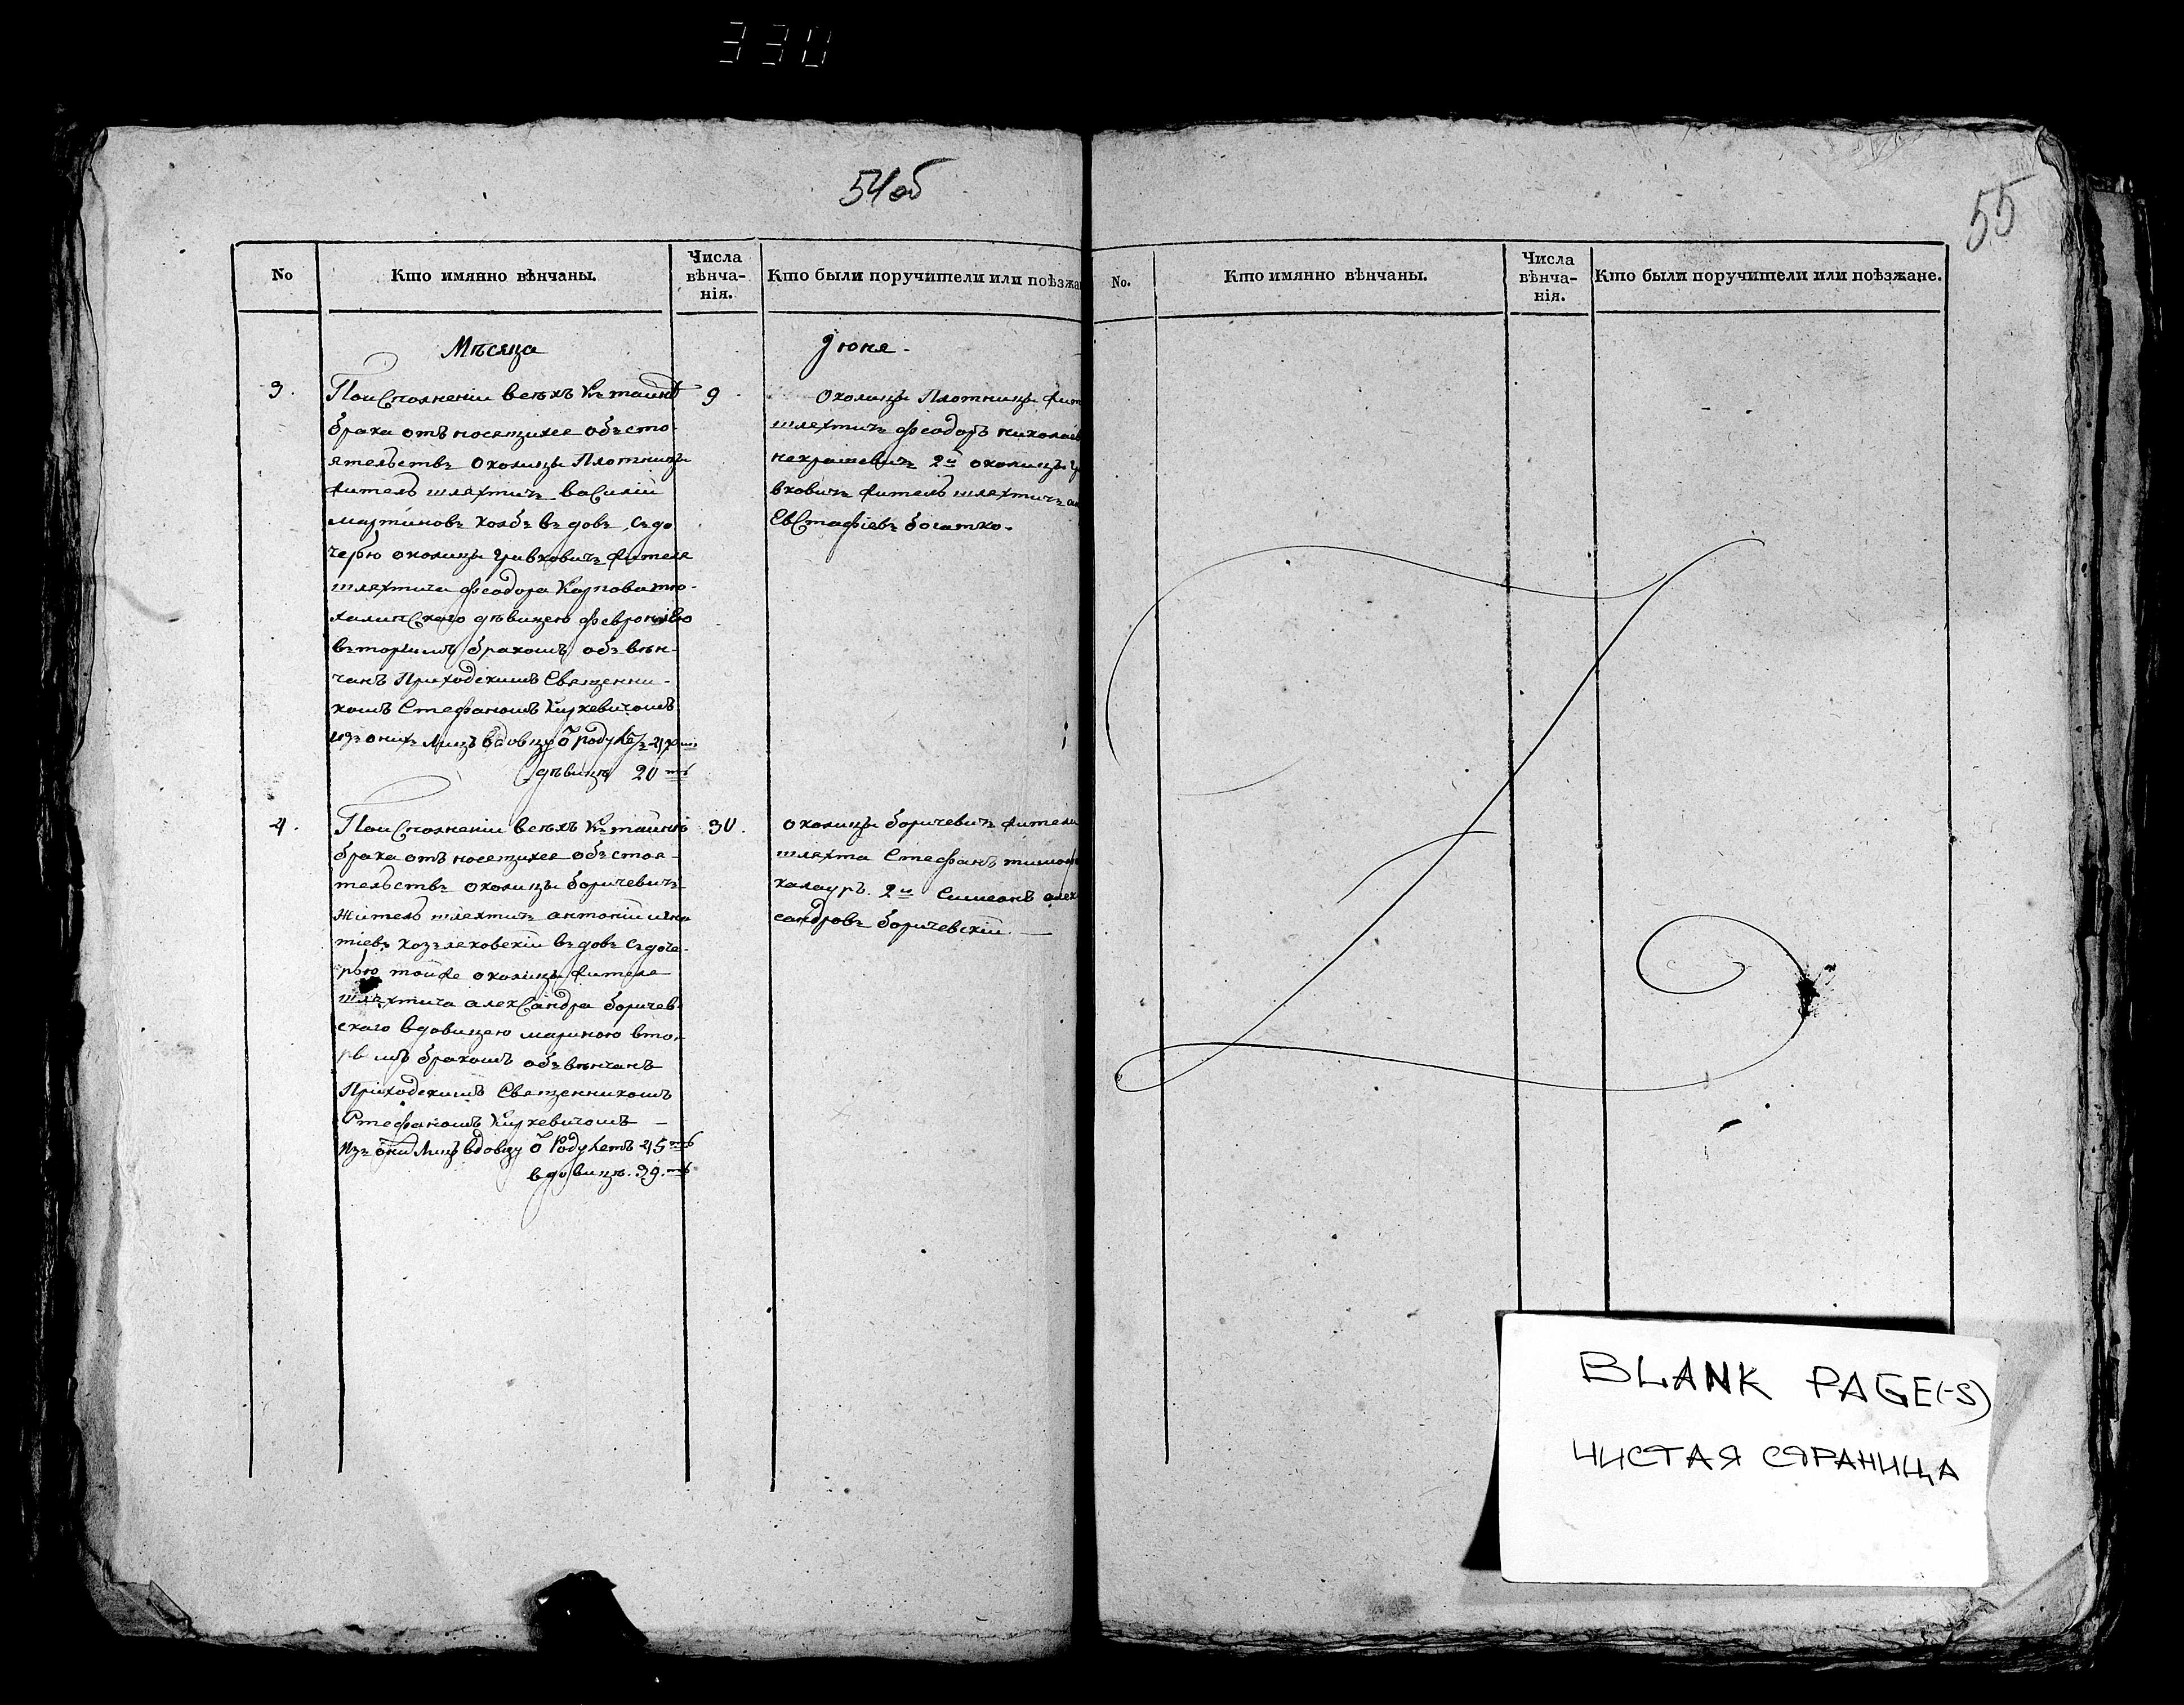 330
54об
No
Кто имянно вѣнчаны.
Числа
вѣнча-
нія.
Кто были поручители или поѣзжа
Мѣсяца
Іюня.
3.
9.
Поисполненіи всѣхъ къ тайнѣ
брака отъносящихся объсто-
ятельствъ околицы Плотницы
житель шляхтичъ василій
мартиновъ колбъ въдовъ съдо
черью околицы житела
шляхтича феодора Карпова
дѣвицею февроніею
въторымъ бракомъ объвѣн-
чанъ Приходскимъ Священни-
комъ Стефаномъ Киркевичомъ
изъ онихъ лицъ вдовцу ѿ роду
дѣвицѣ 20ть
Околицы Плотницы жит
шляхтичъ феодоръ николаев
некрашевичъ 2й околицы
вковичъ житель шляхтичъ
Евстафіевъ богатко.
4.
30.
Поисполненіи всѣхъ къ тайнѣ
брака отъносящихся объстоя-
тельствъ околицы боричевичъ
житель шляхтичъ антоній игна
тіевъ козъляковскій въдовъ съдоче-
рью тойже околицы жителя
шляхтича александра боричев-
скаго вдовицею мариною вто-
рымъ бракомъ объвѣнчанъ
Приходскимъ Священникомъ
Стефаномъ Киркевичомъ —
Изъ они лицъ вдовцу ѿ роду летъ 45ть
вдовицѣ. 39.ть
околицы боричевичъ жители
шляхта Стефанъ тимоф
калауръ. 2й Симеонъ алек
сандровъ боричевскій. —
55
No.
Кто имянно вѣнчаны.
Числа
вѣнча-
нія.
Кто были поручители или поѣзжане.
BLANK PAGE(-S)
ЧИСТАЯ СТРАНИЦА